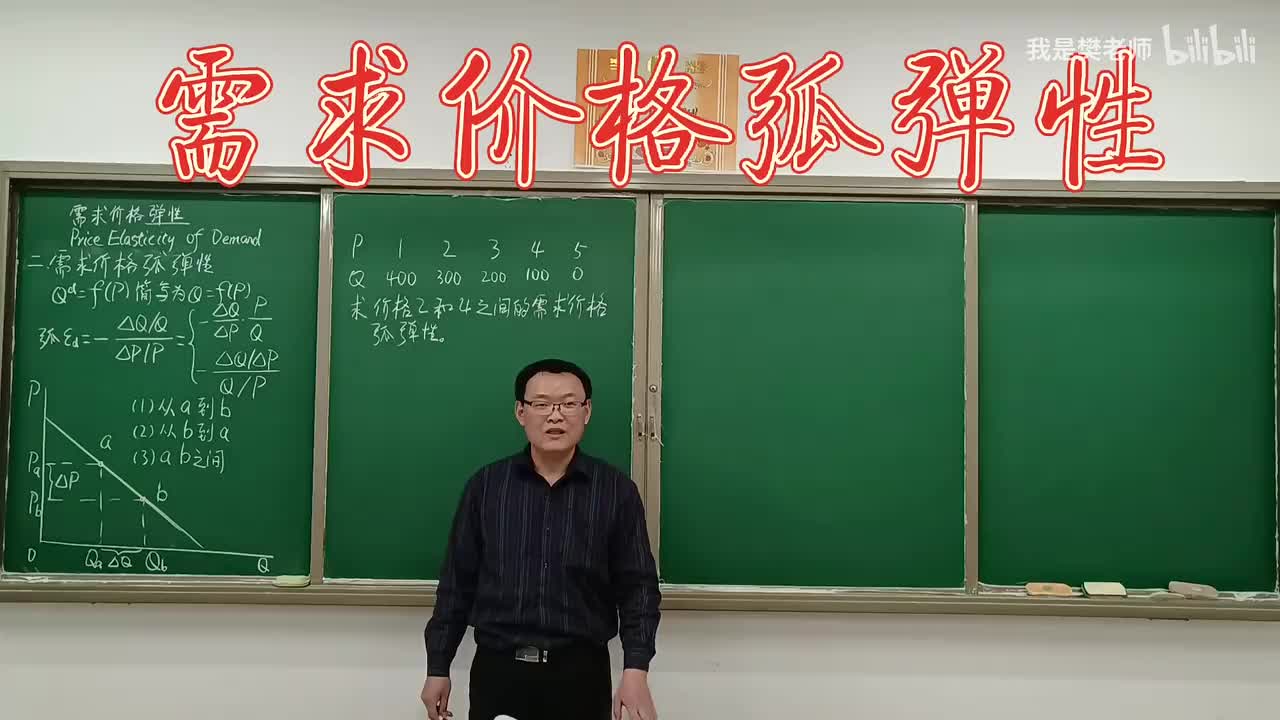 需求价格弧弹性
我是樊老师 bilibili
需求价格弹性
Price Elasticity of Demand
二.需求价格弧弹性
Qᵈ=f(P)简写为Q=f(P)
弧εd=-(ΔQ/Q)/(ΔP/P)={-ΔQ/ΔP·P/Q
-(ΔQ/ΔP)/(Q/P)
P
(1)从a到b
(2)从b到a
(3)ab之间
a
Pa
ΔP
Pb
b
O
Qa ΔQ Qb
Q
P 1 2 3 4 5
Q 400 300 200 100 0
求价格2和4之间的需求价格
弧弹性。